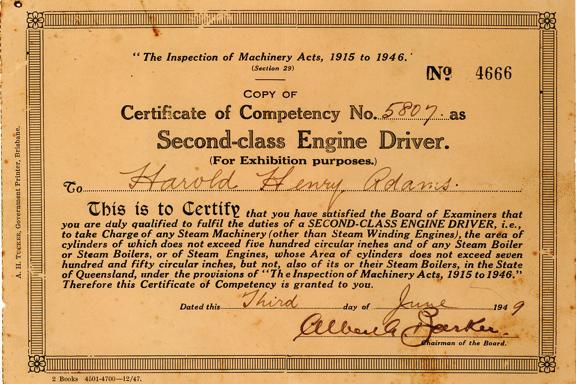 "The Inspection of Machinery Acts, 1915 to 1946."
(Section 29)
No 4666
COPY OF
Certificate of Competency No. 5807. as
Second-class Engine Driver.
(For Exhibition purposes.)
To Harold Henry Adams.
This is to Certify that you have satisfied the Board of Examiners that
you are duly qualified to fulfil the duties of a SECOND-CLASS ENGINE DRIVER, i.e.,
to take Charge of any Steam Machinery (other than Steam Winding Engines), the area of
cylinders of which does not exceed five hundred circular inches and of any Steam Boiler
or Steam Boilers, or of Steam Engines, whose Area of cylinders does not exceed seven
hundred and fifty circular inches, but not, also of its or their Steam Boilers, in the State
of Queensland, under the provisions of "The Inspection of Machinery Acts, 1915 to 1946."
Therefore this Certificate of Competency is granted to you.
Dated this Third day of June 1949
Albert G Barker.
Chairman of the Board.
2 Books 4501-4700—12/47.
A. H. TUCKER, Government Printer, Brisbane.